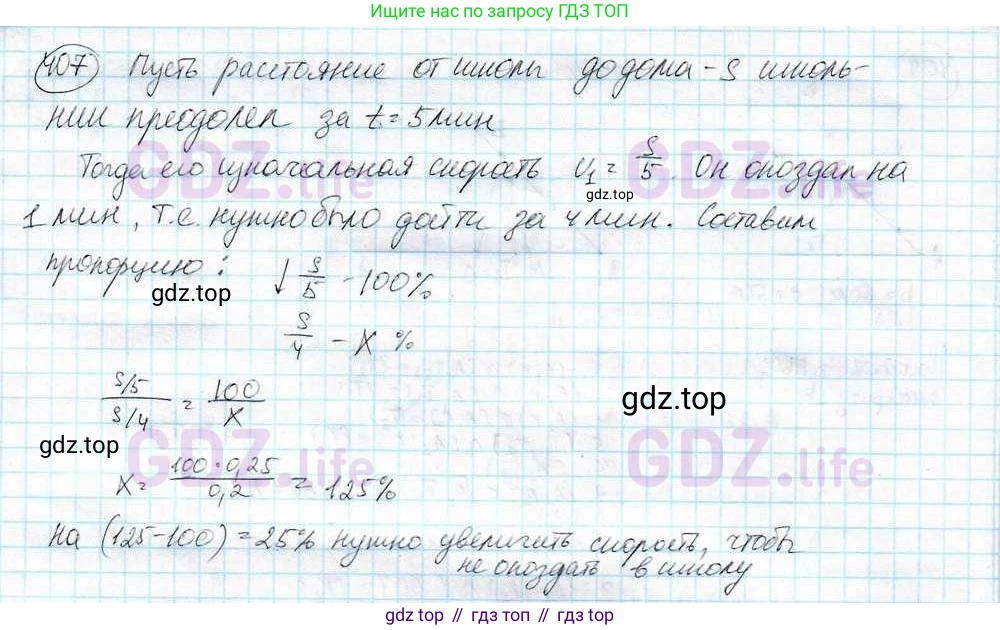 Ищите нас по запросу ГДЗ ТОП
407 Пусть расстояние от школы до дома - S школь-
ник преодолел за t = 5 мин
Тогда его изначальная скорость v₁ = S/5. Он опоздал на
1 мин, т.е. нужно было дойти за 4 мин. Составим
пропорцию:
↓ S/5 - 100%
S/4 - X %
(S/5)/(S/4) = 100/X
X = (100·0,25)/0,2 = 125%
на (125-100) = 25% нужно увеличить скорость, чтобы
не опоздать в школу
GDZ.life
GDZ.life
GDZ.life
GDZ.life
gdz.top
gdz.top
gdz.top
gdz.top
gdz top // гдз топ // gdz.top